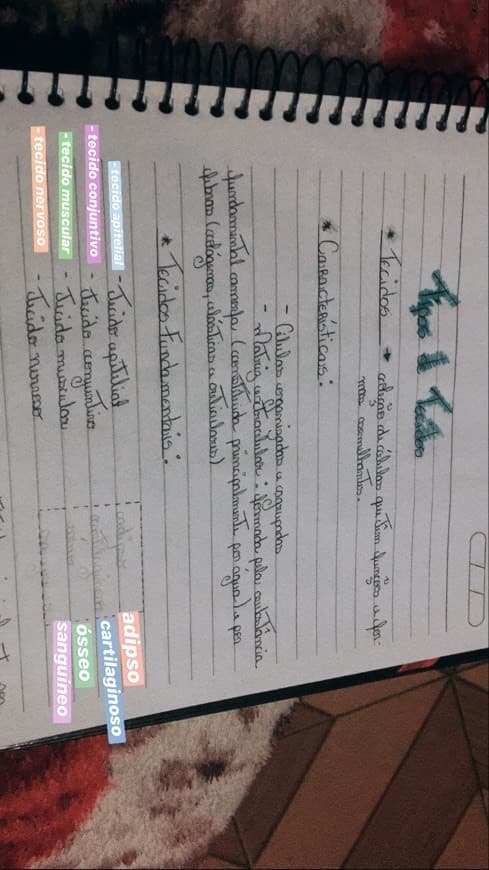 Tipos de Tecidos
* Tecidos → coleção de células que têm funções e for-
mas semelhantes.
* Características:
- Células organizadas e agrupadas
- Matriz extracelular: formada pela substância
fundamental amorfa (constituída principalmente por água) e por
fibras (colágenas, elásticas e reticulares)
* Tecidos Fundamentais:
- tecido apitelial - Tecido epitelial
- tecido conjuntivo - Tecido conjuntivo
- tecido muscular - Tecido muscular
- tecido nervoso - Tecido nervoso
adipso
cartilaginoso
ósseo
sanguíneo